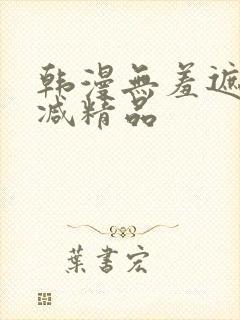 韩漫无羞遮
减精品
葉書宏